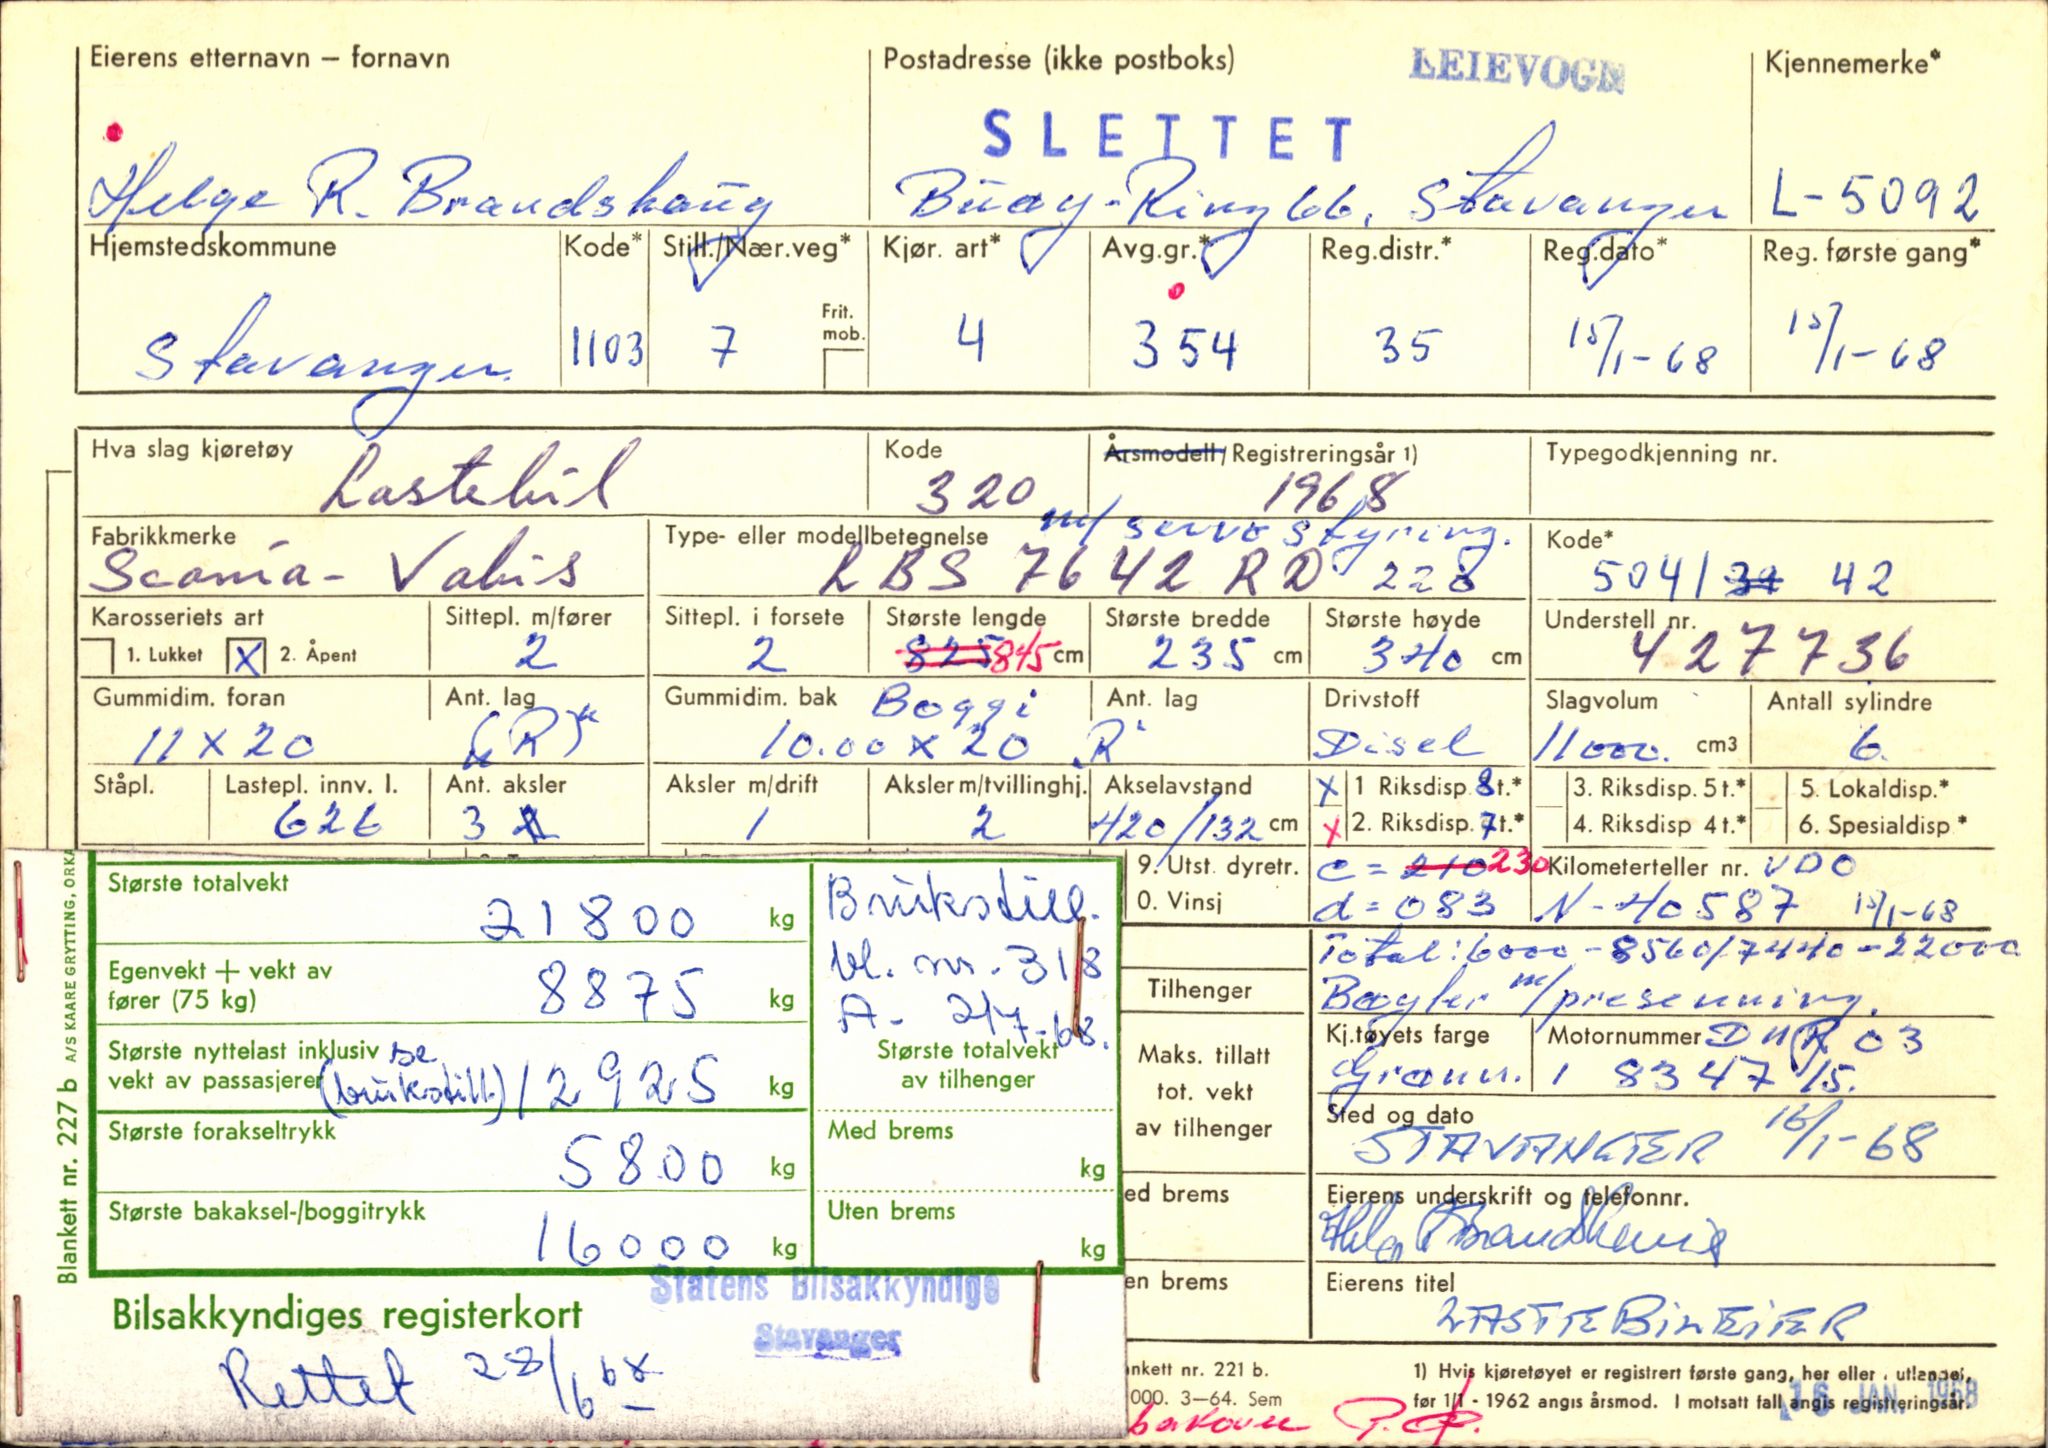 Eierens etternavn – fornavn Postadresse (ikke postboks) LEIEVOGN Kjennemerke*
SLETTET
Helge R. Brandshaug Buøy-Ring 66, Stavanger L-5092
Hjemstedskommune Kode* Still./Nær.veg* Kjør. art* Avg.gr.* Reg.distr.* Reg.dato* Reg. første gang*
Frit. mob.
Stavanger 1103 7 4 354 35 15/1-68 15/1-68
Hva slag kjøretøy Kode Årsmodell/Registreringsår 1) Typegodkjenning nr.
Lastebil 320 1968
m/servostyring.
Fabrikkmerke Type- eller modellbetegnelse Kode*
Scania-Vabis LBS 7642 RD 228 5041 39 42
Karosseriets art Sittepl. m/fører Sittepl. i forsete Største lengde Største bredde Største høyde Understell nr.
1. Lukket X 2. Åpent 2 2 825 845 cm 235 cm 340 cm 427736
Gummidim. foran Ant. lag Gummidim. bak Boggi Ant. lag Drivstoff Slagvolum Antall sylindre
11 x 20 (R) 10.00 x 20 R Disel 11000. cm3 6.
Ståpl. Lastepl. innv. l. Ant. aksler Aksler m/drift Aksler m/tvillinghj. Akselavstand X 1 Riksdisp. 8 t.* 3. Riksdisp. 5 t.* 5. Lokaldisp.*
626 3 1 2 420/132 cm X 2. Riksdisp. 7 t.* 4. Riksdisp 4 t.* 6. Spesialdisp*
9. Utst. dyretr. c = 210 230 Kilometerteller nr. VDO
0. Vinsj d = 083 N-40587 15/1-68
Total: 6000 - 8560/7440 = 22000
Tilhenger Bøyler m/presenning.
Kj.tøyets farge Motornummer DllR 03
Maks. tillatt tot. vekt av tilhenger
Grønn. 1 8347 15.
Sted og dato
STAVANGER 16/1-68
ed brems Eierens underskrift og telefonnr.
en brems Eierens titel
LASTEBILEIER
nkett nr. 221 b.
000. 3–64. Sem
1) Hvis kjøretøyet er registrert første gang, her eller i utlandet,
før 1/1 - 1962 angis årsmod. I motsatt fall angis registreringsår.
16 JAN. 1968
Største totalvekt 21800 kg
Brukstill.
bl. nr. 318
A- 2/7-68.
Egenvekt + vekt av
fører (75 kg) 8875 kg
Største nyttelast inklusiv se
vekt av passasjerer (brukstill.) 12925 kg
Største totalvekt
av tilhenger
Største forakseltrykk 5800 kg Med brems kg
Største bakaksel-/boggitrykk 16000 kg Uten brems kg
Bilsakkyndiges registerkort
Statens Bilsakkyndige
Stavanger
Rettet 28/6 68
Blankett nr. 227 b A/S KAARE GRYTTING, ORKA